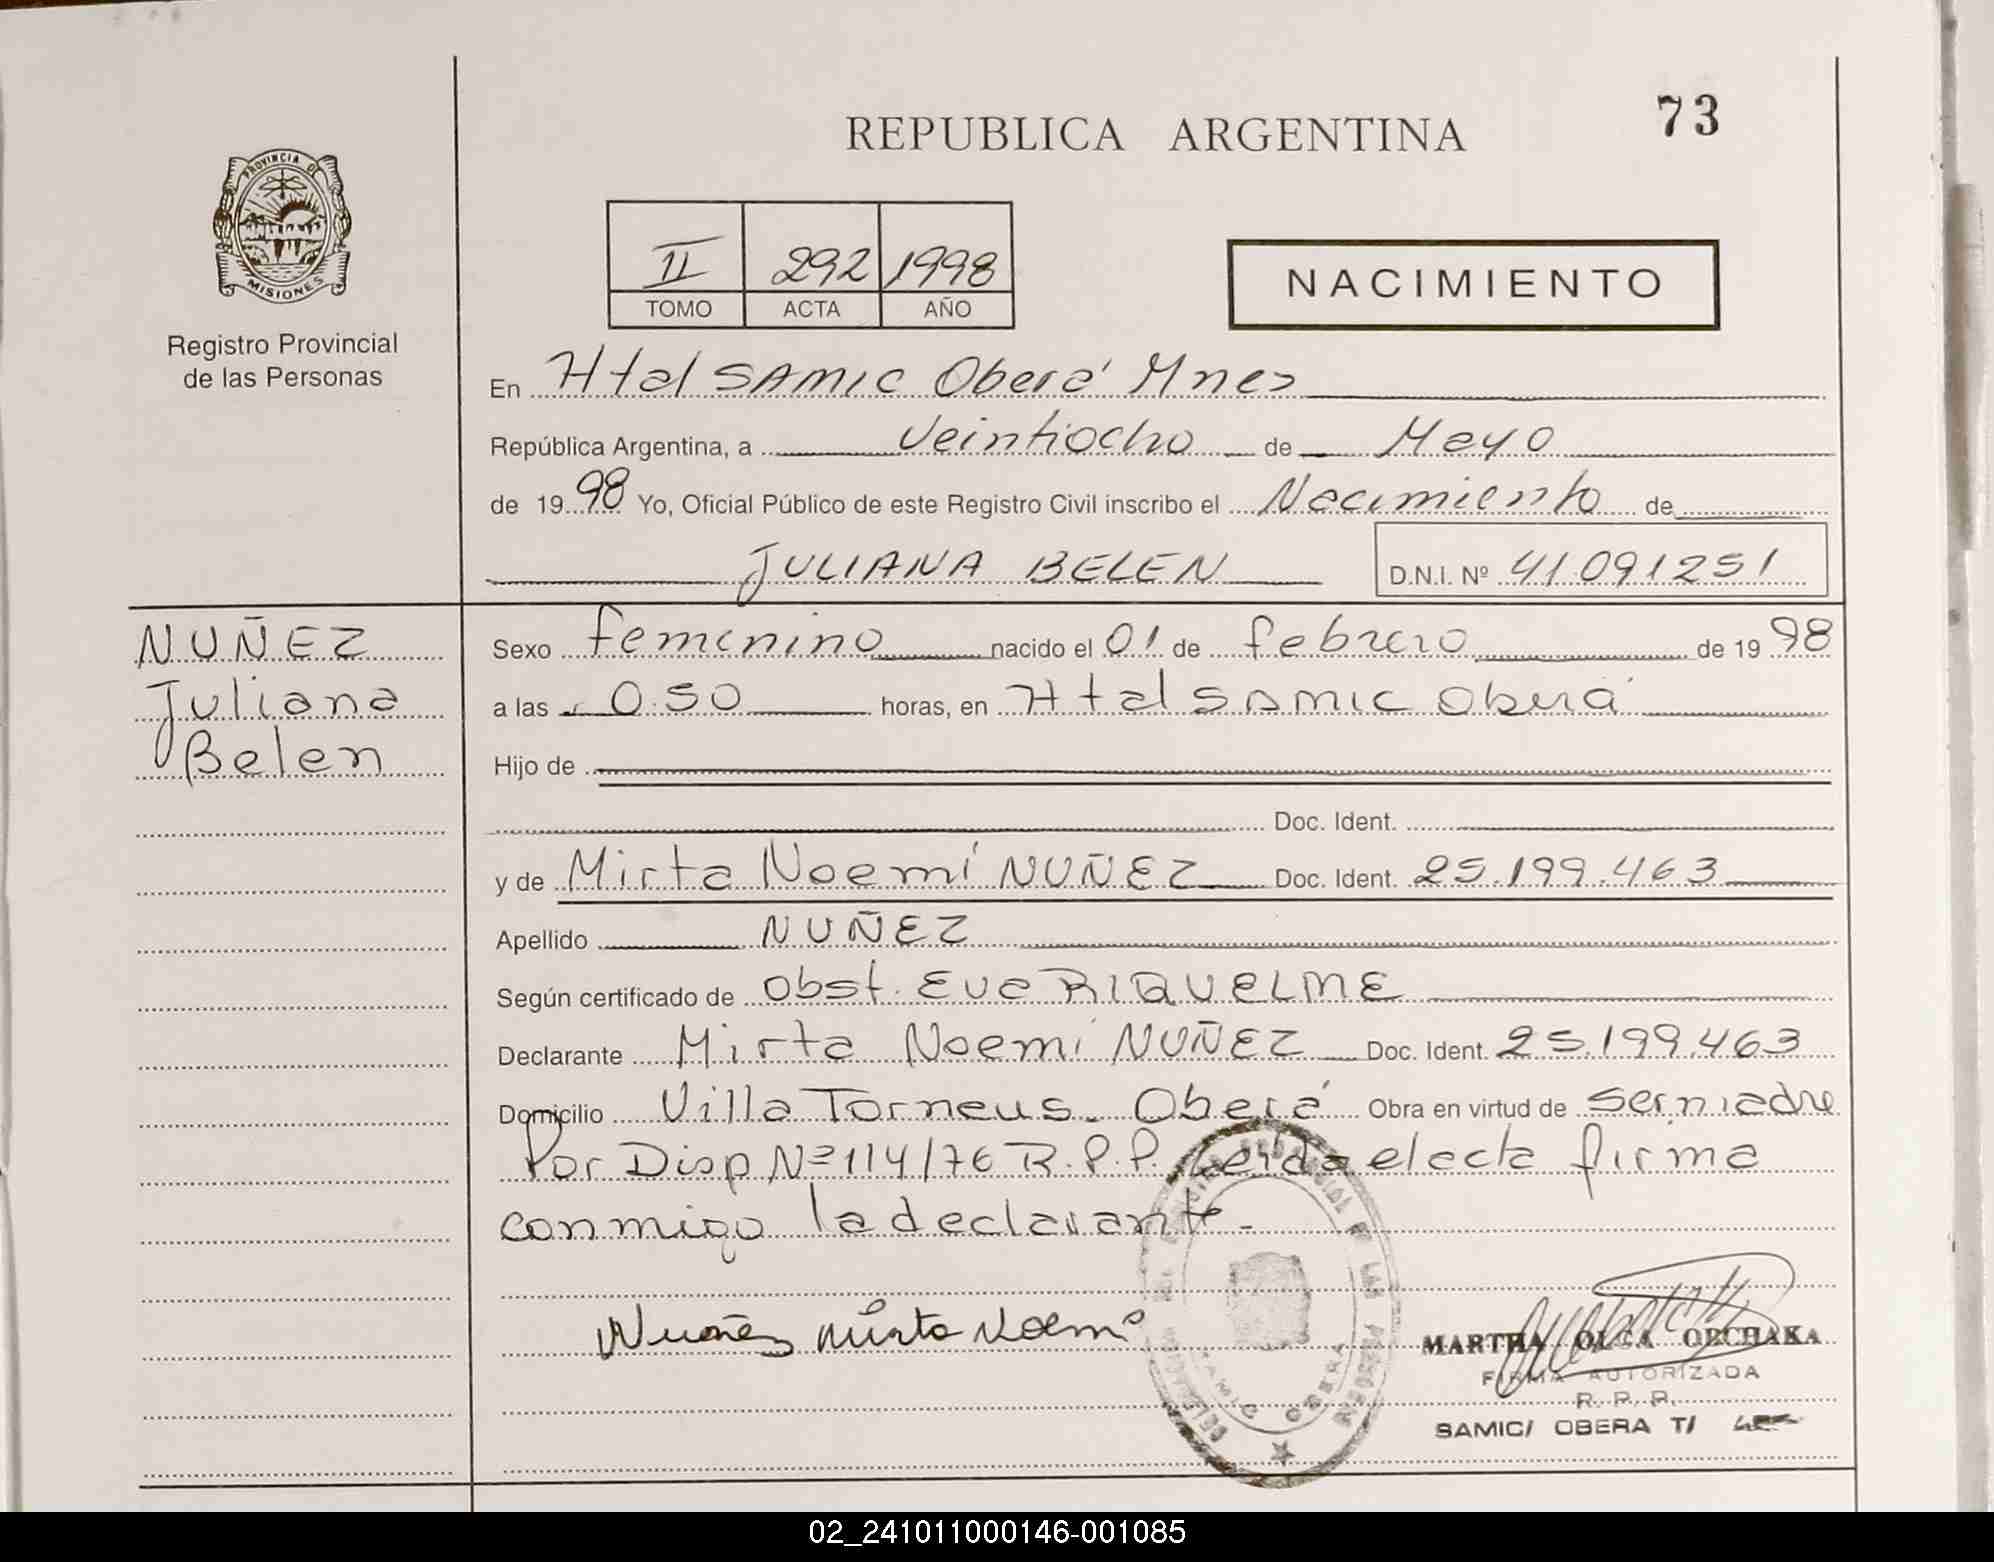 REPUBLICA ARGENTINA
73
PROVINCIA DE
MISIONES
Registro Provincial
de las Personas
II 292 1998
TOMO ACTA AÑO
NACIMIENTO
En Htal SAMIC Oberá Mnes
República Argentina, a Veintiocho de Mayo
de 1998 Yo, Oficial Público de este Registro Civil inscribo el Nacimiento de
JULIANA BELEN D.N.I. Nº 41091251
NUÑEZ
Juliana
Belen
Sexo femenino nacido el 01 de febrero de 1998
a las 0:50 horas, en Htal SAMIC Oberá
Hijo de
Doc. Ident.
y de Mirta Noemí NUÑEZ Doc. Ident. 25.199.463
Apellido NUÑEZ
Según certificado de Obst. Eva RIQUELME
Declarante Mirta Noemí NUÑEZ Doc. Ident. 25.199.463
Domicilio Villa Torneus. Oberá Obra en virtud de ser madre
Por Disp Nº 114/76 R.P.P. Leida el acta firma
conmigo la declarante.
Nuñez Mirta Noemi
SAMIC OBERA
MARTHA OLGA ORCHAKA
FIRMA AUTORIZADA
R. P. P.
SAMIC/ OBERA T/
02_241011000146-001085